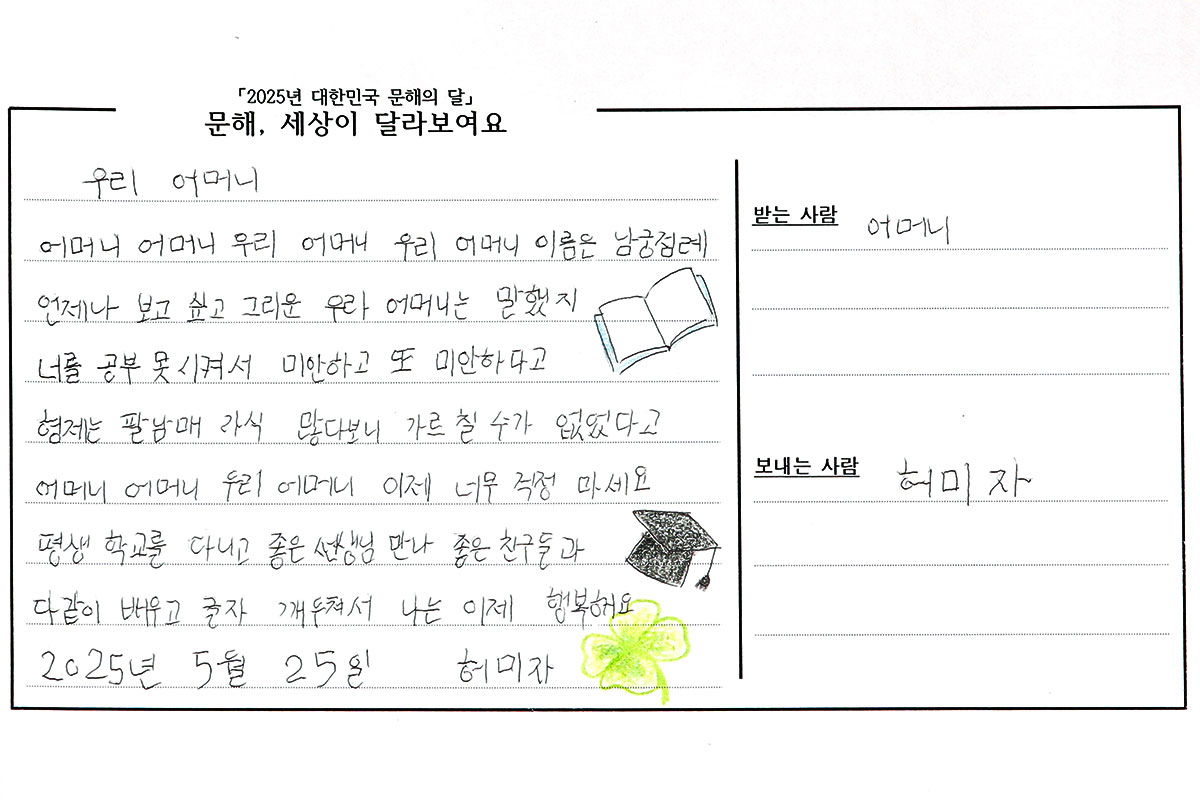 「2025년 대한민국 문해의 달」
문해, 세상이 달라보여요
우리 어머니
어머니 어머니 우리 어머니 우리 어머니 이름은 남궁점례
언제나 보고 싶고 그리운 우리 어머니는 말했지
너를 공부 못 시켜서 미안하고 또 미안하다고
형제는 팔남매 자식 많다보니 가르칠 수가 없었다고
어머니 어머니 우리 어머니 이제 너무 걱정 마세요
평생 학교를 다니고 좋은 선생님 만나 좋은 친구들과
다같이 배우고 글자 깨우쳐서 나는 이제 행복해요
2025년 5월 25일 허미자
받는 사람 어머니
보내는 사람 허미자